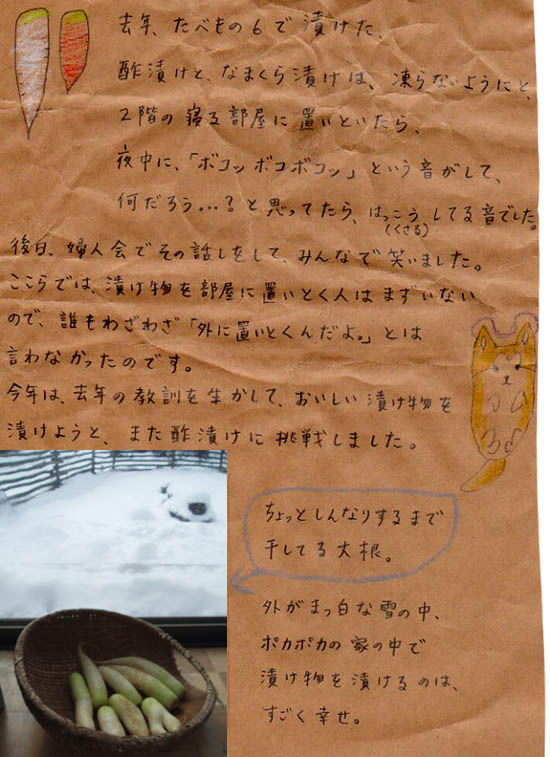 去年、たべもの6で漬けた、
酢漬けと、なまくら漬けは、凍らないようにと、
2階の寝る部屋に置いといたら、
夜中に、「ボコッボコボコッ」という音がして、
何だろう...?と思ってたら、はっこうしてる音でした。
(くさる)
後日、婦人会でその話しをして、みんなで笑いました。
ここらでは、漬け物を部屋に置いとく人はまずいない
ので、誰もわざわざ「外に置いとくんだよ。」とは
言わなかったのです。
今年は、去年の教訓を生かして、おいしい漬け物を
漬けようと、また酢漬けに挑戦しました。
ちょっとしんなりするまで
干してる大根。
外がまっ白な雪の中、
ポカポカの家の中で
漬け物を漬けるのは、
すごく幸せ。